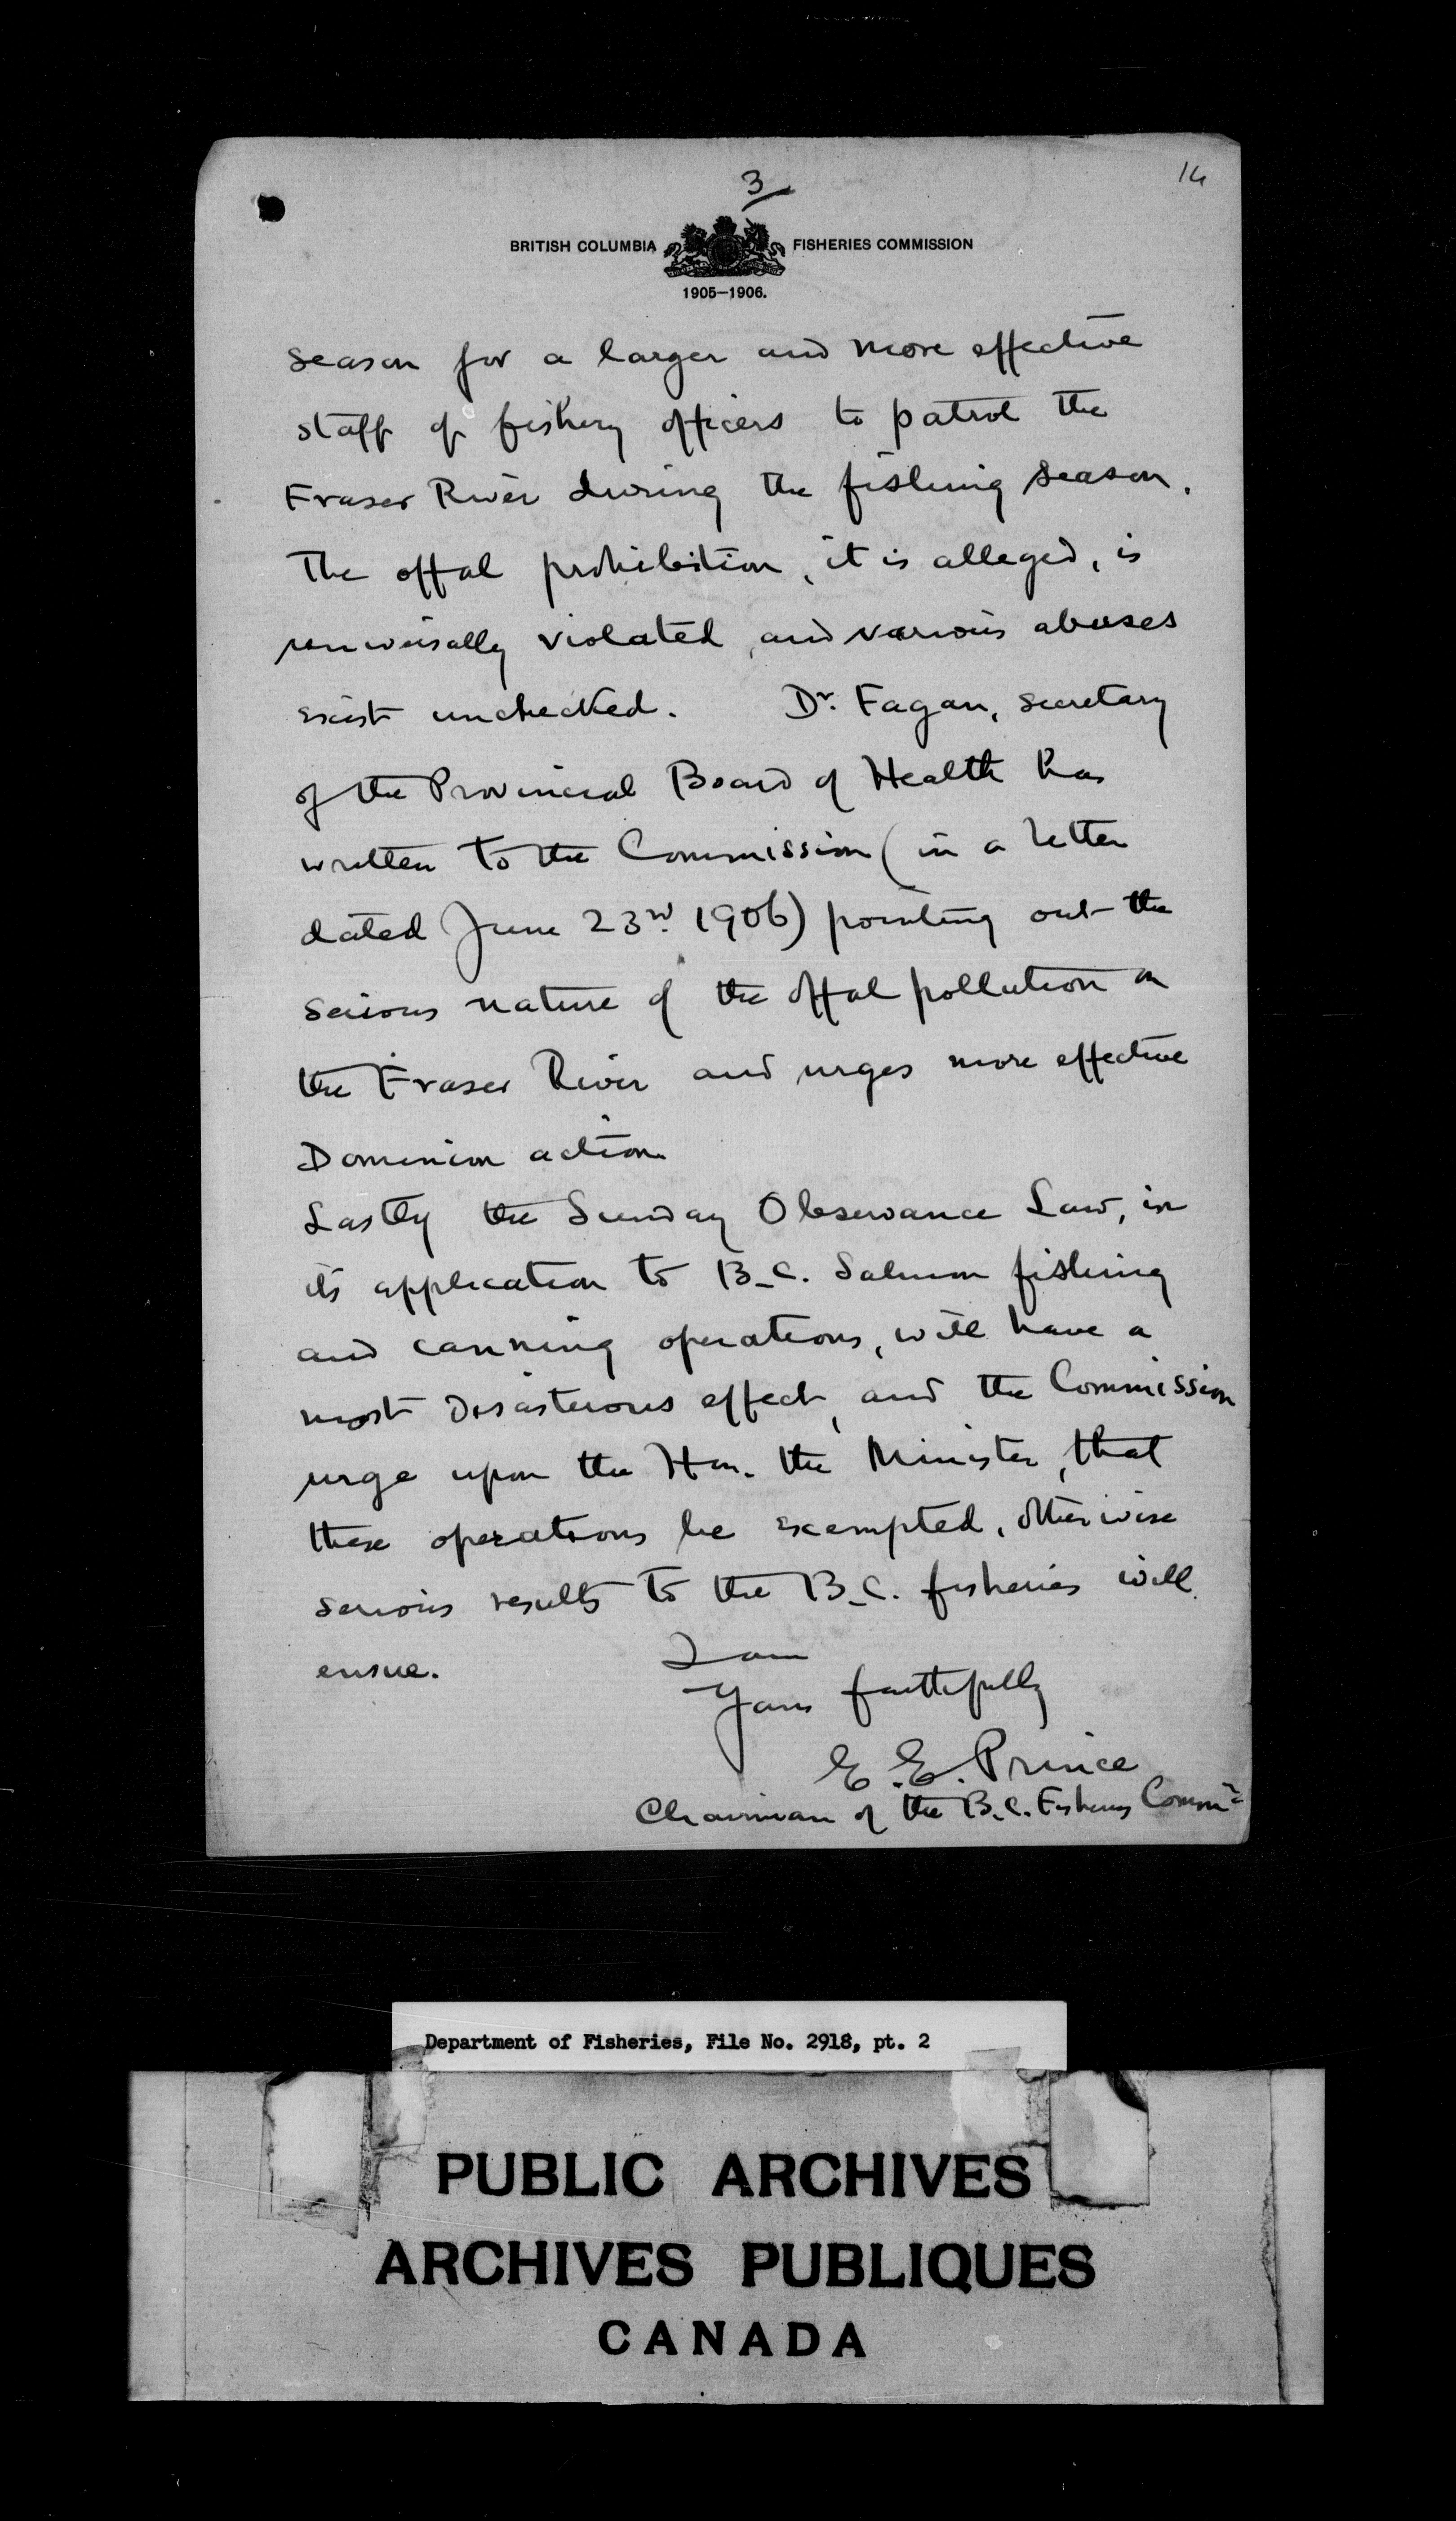 3
14
BRITISH COLUMBIA FISHERIES COMMISSION
1905–1906.
season for a larger and more effective
staff of fishery officers to patrol the
Fraser River during the fishing season.
The offal prohibition, it is alleged, is
universally violated, and various abuses
exist unchecked. Dr. Fagan, secretary
of the Provincial Board of Health has
written to the Commission (in a letter
dated June 23rd 1906) pointing out the
serious nature of the offal pollution on
the Fraser River and urges more effective
Dominion action.
Lastly the Sunday Observance Law, in
its application to B.C. Salmon fishing
and canning operations, will have a
most disasterous effect, and the Commission
urge upon the Hon. the Minister, that
these operations be exempted, otherwise
serious results to the B.C. fisheries will
ensue. I am
Yours faithfully
E. E. Prince
Chairman of the B.C. Fisheries Commn
Department of Fisheries, File No. 2918, pt. 2
PUBLIC ARCHIVES
ARCHIVES PUBLIQUES
CANADA